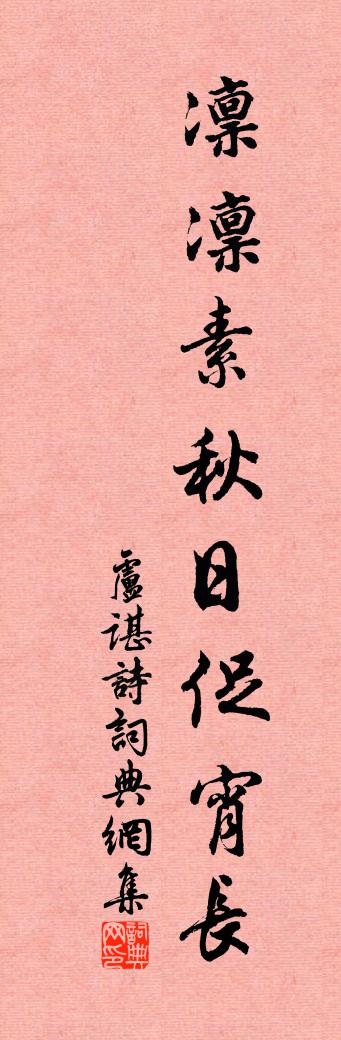 凜凜素秋日促宵長
盧諶詩詞典網集
詞典网印